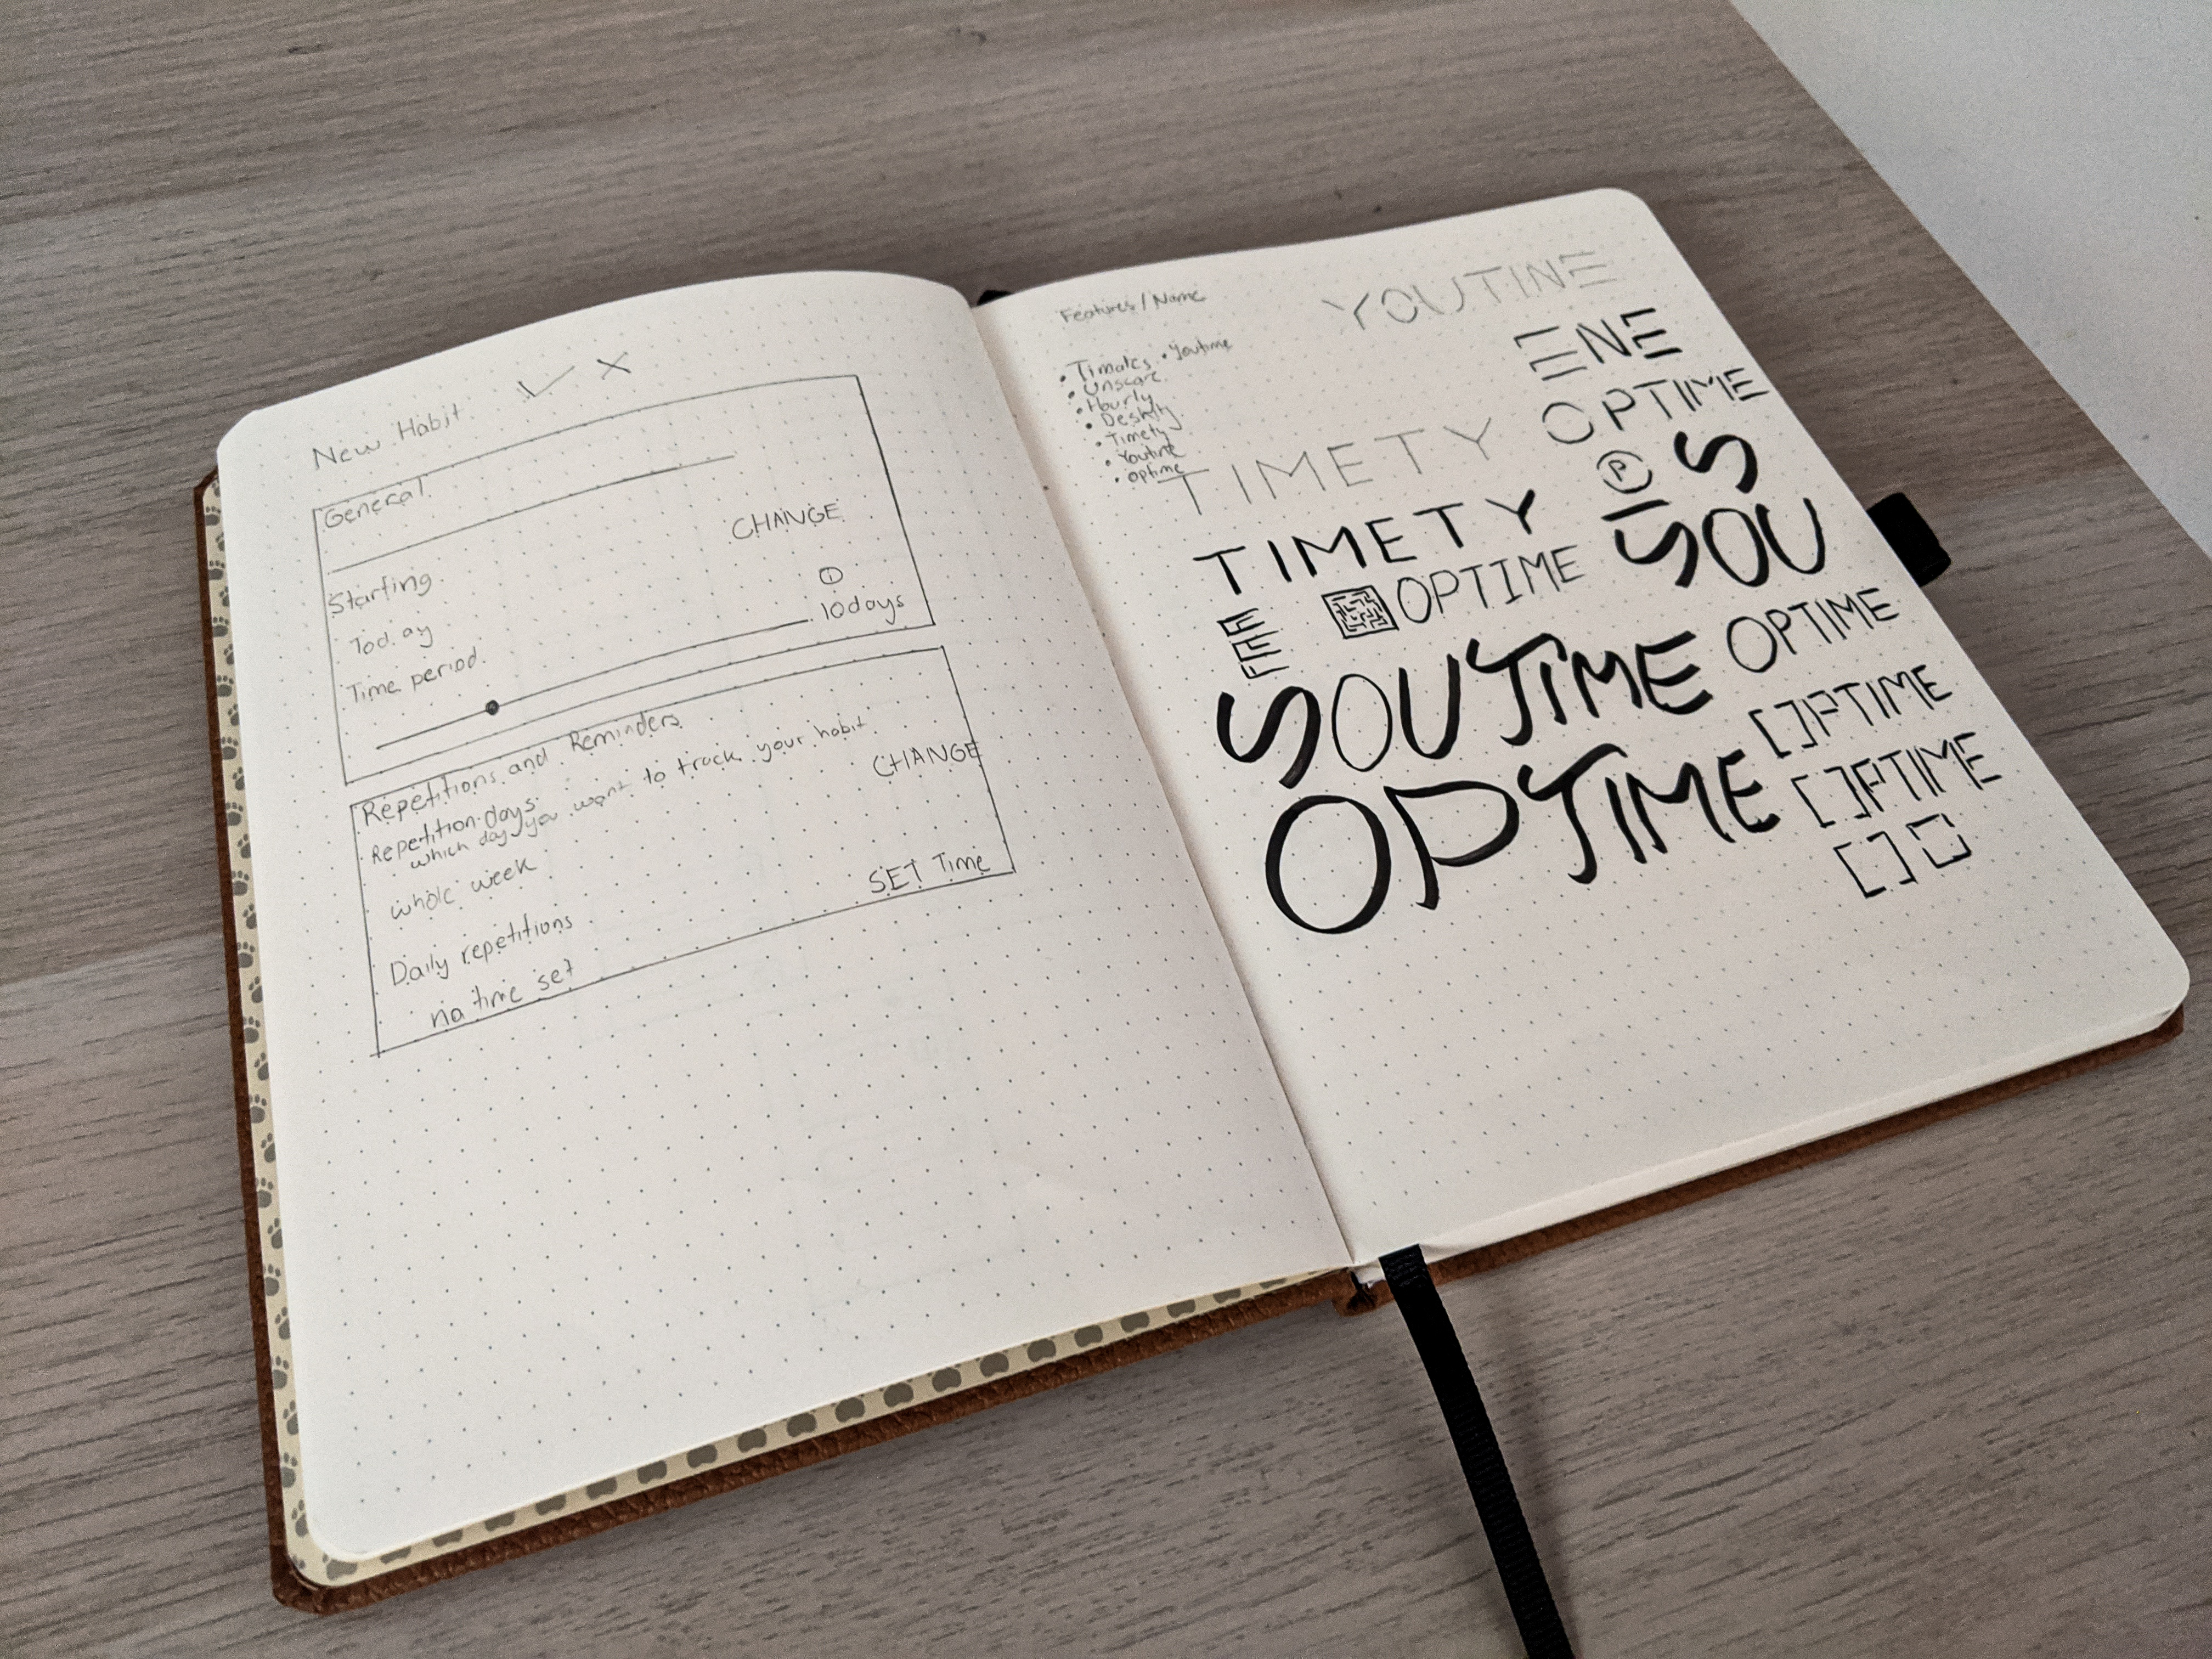 New Habit
General
CHANGE
Starting
Today
Time period
10days
Repetitions and Reminders
Repetition days
which day you want to track your habit
CHANGE
whole week
SET Time
Daily repetitions
no time set
Features / Name
• Youtime
• Hourly
• Timety
• Youtine
• Optime
YOUTINE
ENE
TIMETY
OPTIME
P
S
TIMETY
YOU
OPTIME
E
E
YOUTIME
OPTIME
[]PTIME
OPTIME
[]PTIME
[]